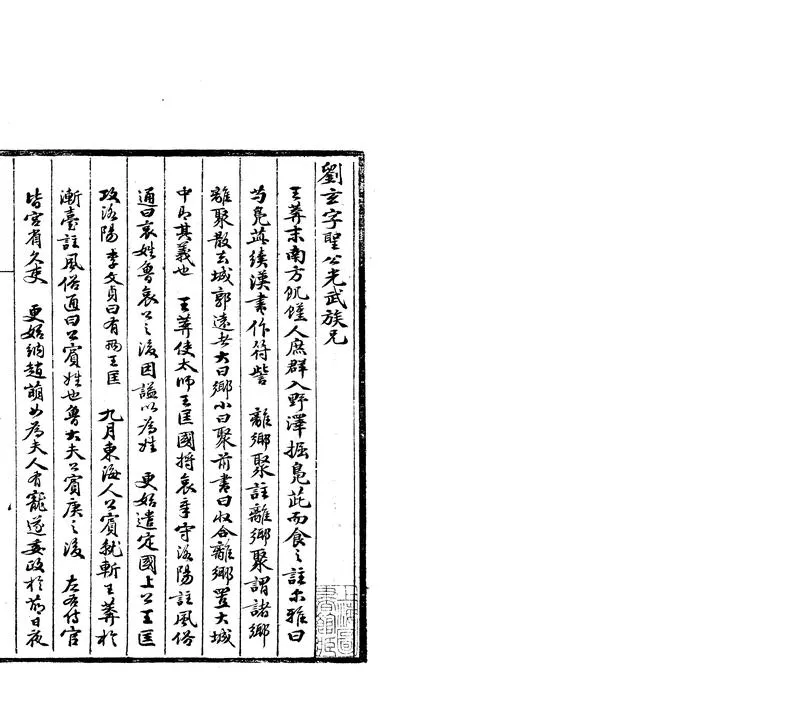 劉玄字聖公光武族兄
王莽末南方飢饉人庶群入野澤掘鳧茈而食之註尔雅曰
芍鳧茈續漢書作符訾　離鄉聚註離鄉聚謂諸鄉
離聚散去城郭遠者大曰鄉小曰聚前書曰收合離鄉置大城
中即其義也　王莽使太師王匡國將哀章守洛陽註風俗
通曰哀姓魯哀公之後因謚以為姓　更始遣定國上公王匡
攻洛陽　李文貞曰有兩王匡　九月東海人公賓就斬王莽於
漸臺註風俗通曰公賓姓也魯大夫公賓庚之後　左右侍官
皆宮省久吏　更始納趙萌女為夫人有寵遂委政於萌日夜
上海圖書館藏